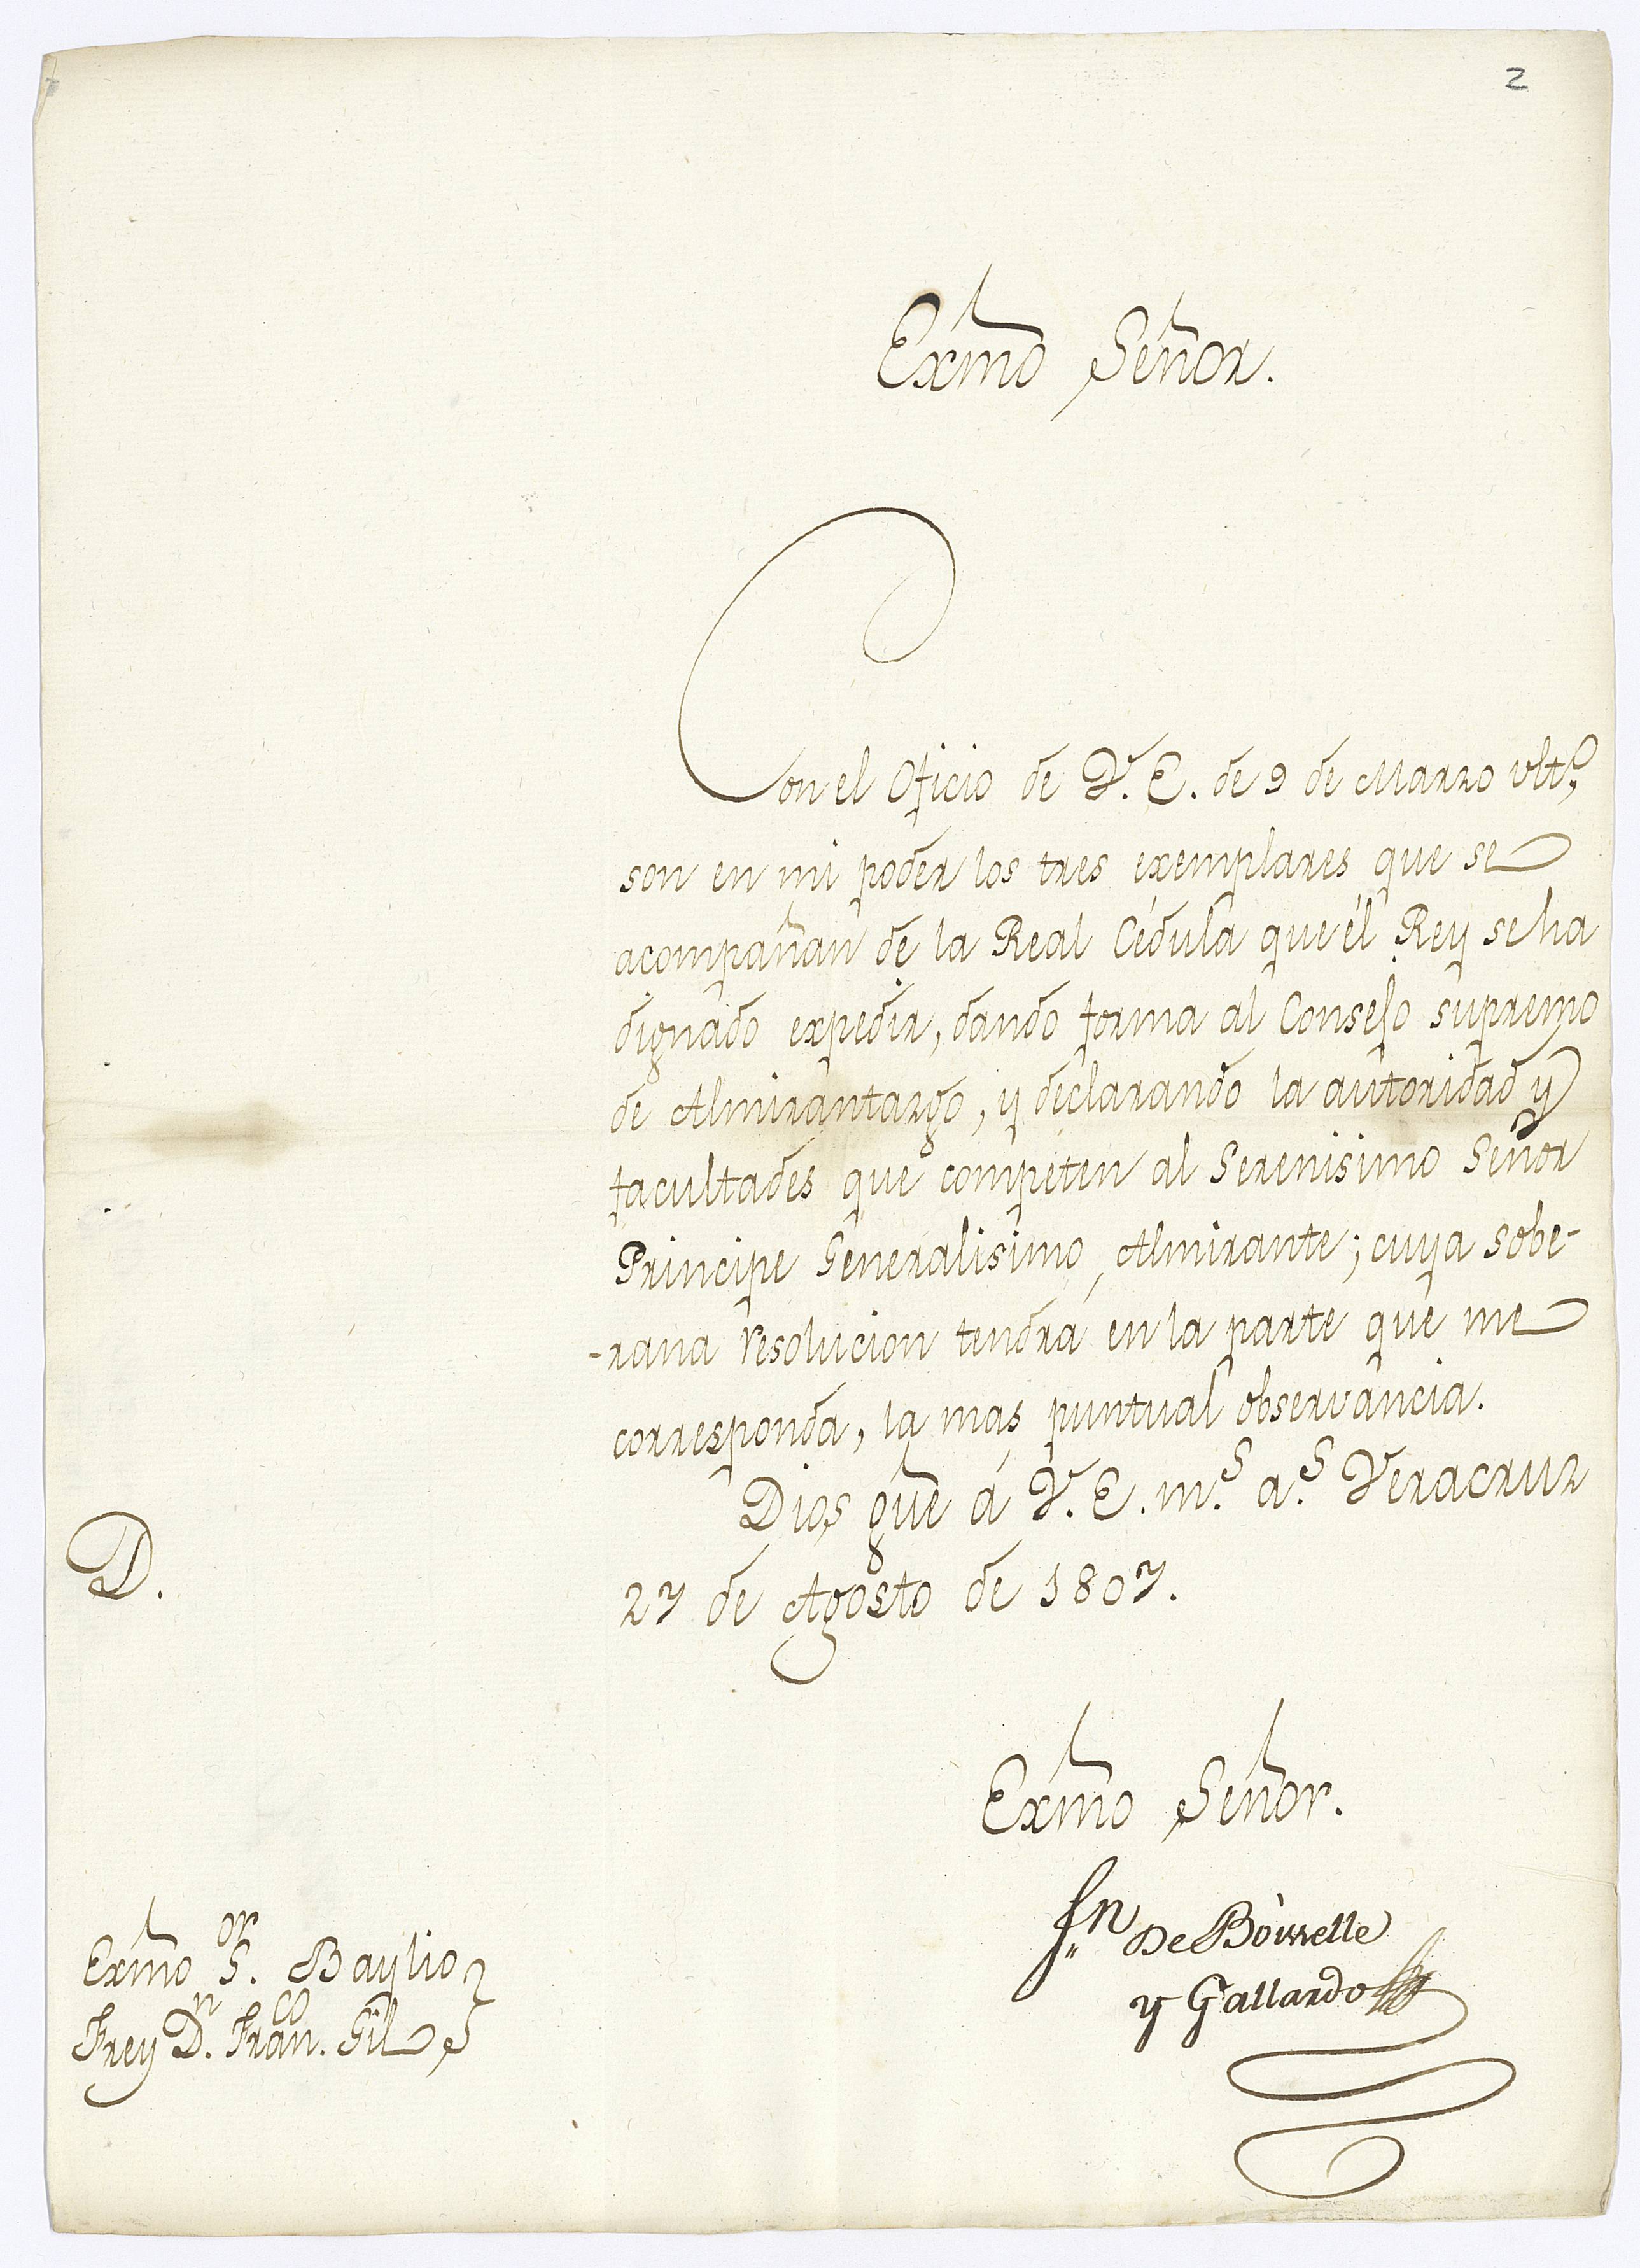 2
Exmo Señor.
Con el Oficio de V. E. de 9 de Marzo ult.º
son en mi poder los tres exemplares que se
acompañan de la Real Cédula que él Rey se ha
dignado expedir, dando forma al Consejo supremo
de Almirantazgo, y declarando la autoridad y
facultades que competen al Serenisimo Señor
Principe Generalisimo, Almirante; cuya sobe-
-rana resolucion tendrá en la parte que me
corresponda, la mas puntual observancia.
Dios gue á V. E. m.s a.s Veracruz
27 de Agosto de 1807.
D.
Exmo Señor.
De
y Gallardo
Exmo S.or Baylio
Frey D.n Fran.co Gil